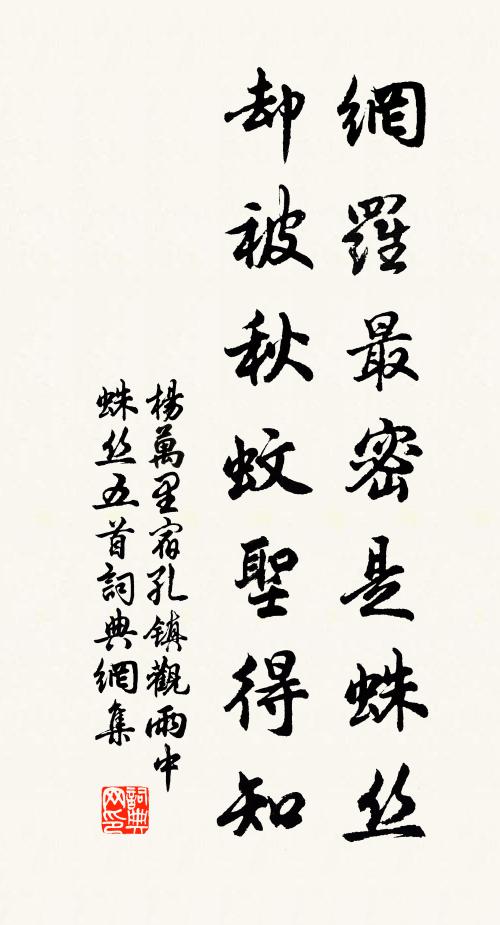 網羅最密是蛛丝
却被秋蚊聖得知
楊萬里宿孔鎮觀雨中
蛛丝五首詞典網集
詞典网印